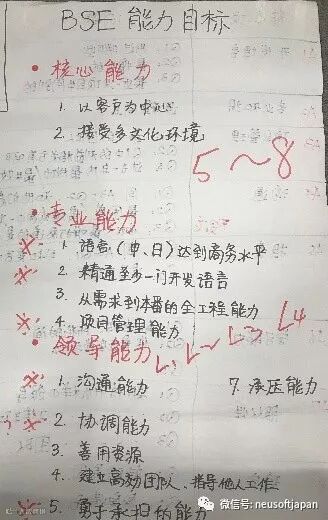 BSE 能力目标
• 核心能力
1. 以客户为中心
2. 接受多文化环境
5～8
• 专业能力
1. 语言（中、日）达到商务水平
2. 精通至少一门开发语言
3. 从需求到本番的全工程能力
4. 项目管理能力
• 领导能力 L1 L2 L3 L4
1. 沟通能力 7. 承压能力
2. 协调能力
3. 善用资源
4. 建立高效团队、指导他人工作
5. 勇于承担的能力
微信号: neusoftjapan